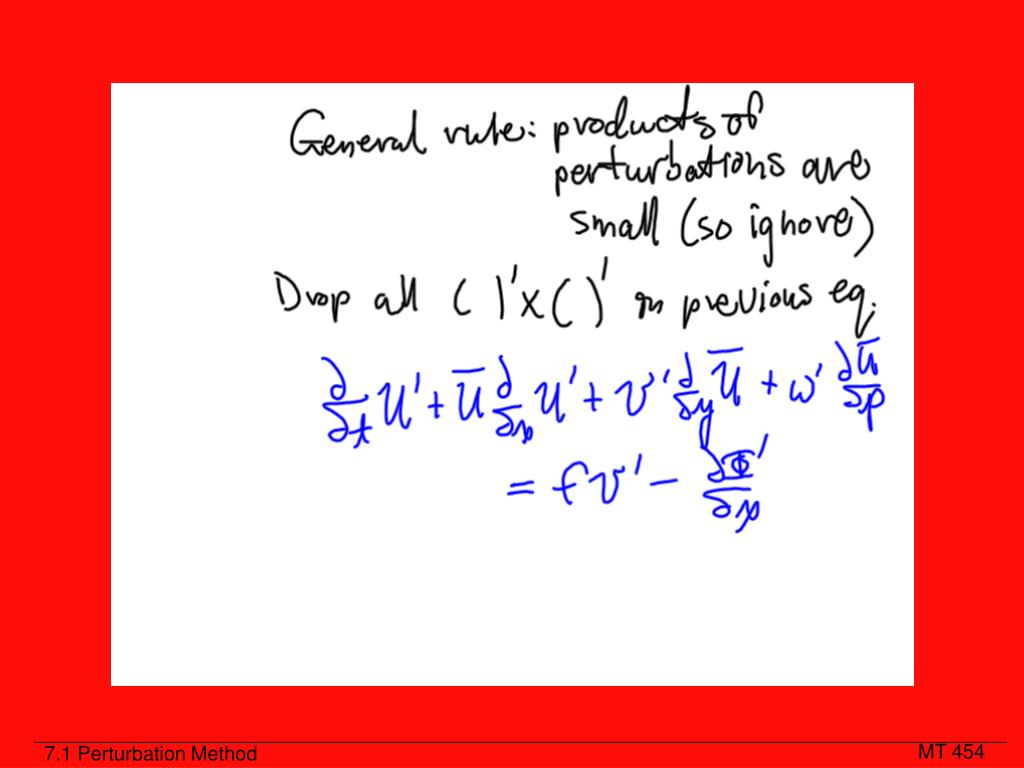 General rule: products of
perturbations are
small (so ignore)
Drop all ( )' x ( )' in previous eq.
∂/∂t u' + ū ∂/∂x u' + v' ∂/∂y ū + ω' ∂ū/∂p
= fv' - ∂Φ'/∂x
7.1 Perturbation Method
MT 454